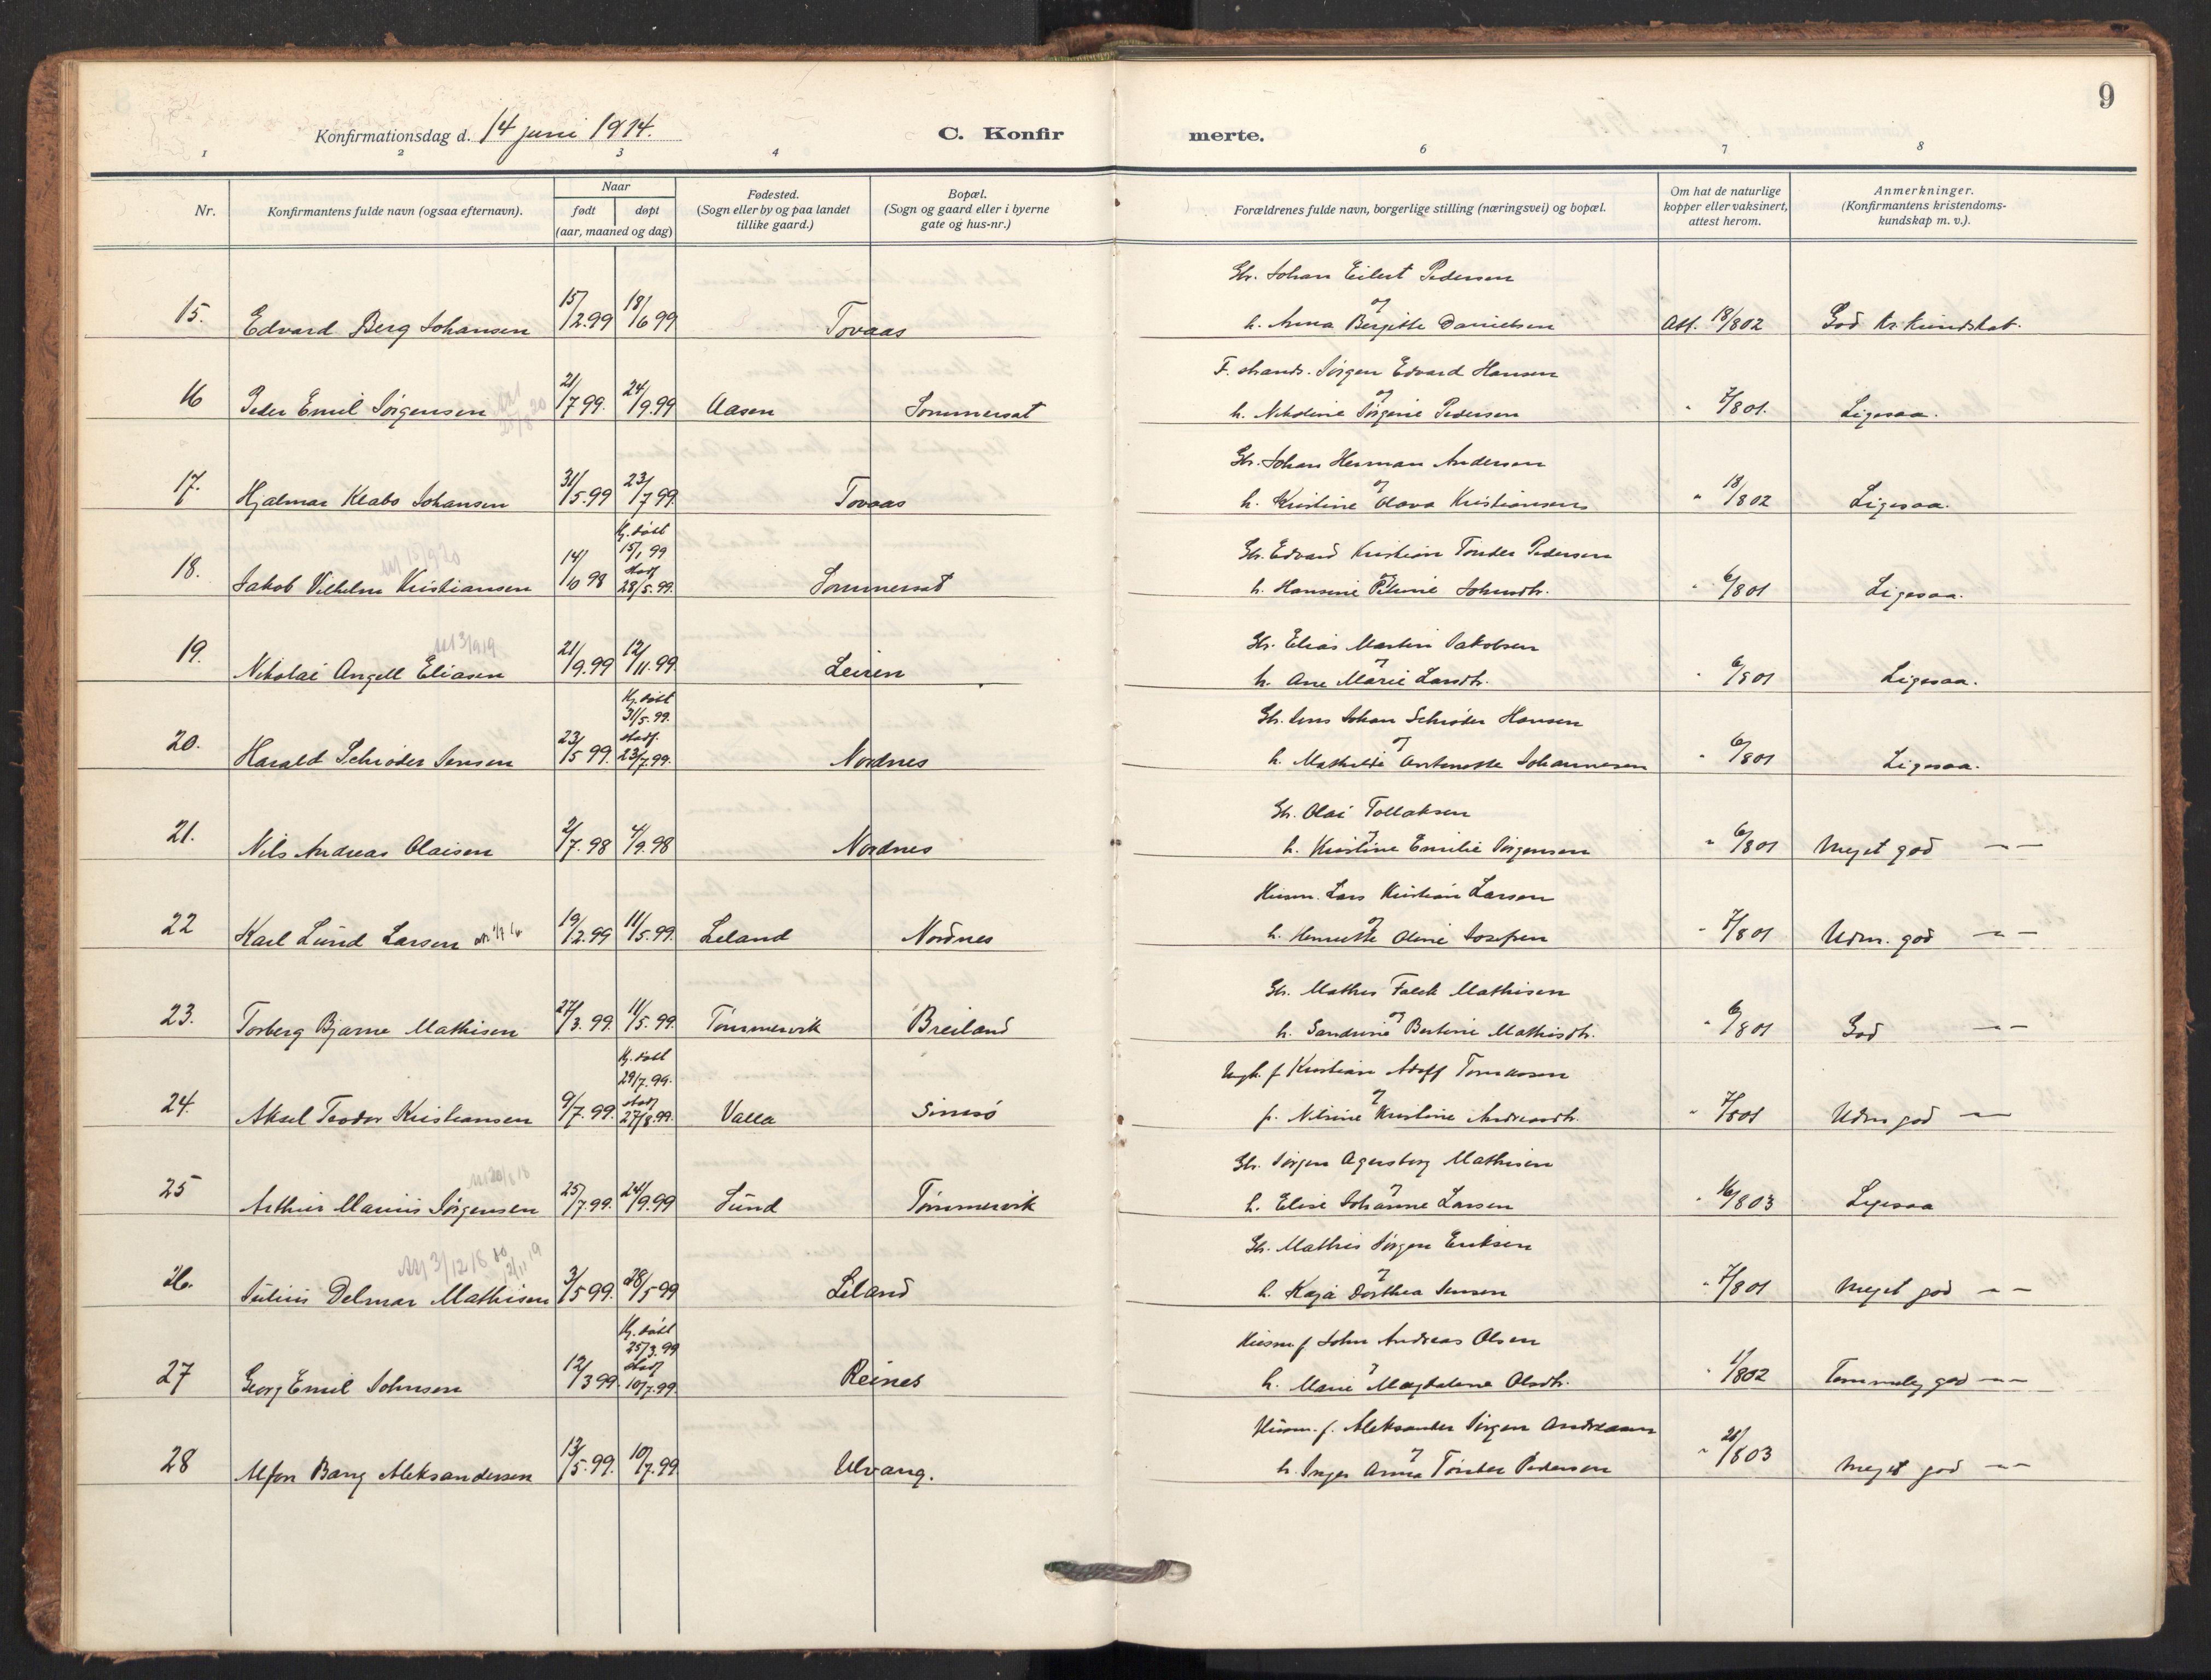 9
Konfirmationsdag d. 14 juni 1914. C. Konfirmerte.
1 2 3 4 6 7 8
Nr.
Konfirmantens fulde navn (ogsaa efternavn).
Naar
født døpt
(aar, maaned og dag)
Fødested.
(Sogn eller by og paa landet
tillike gaard.)
Bopæl.
(Sogn og gaard eller i byerne
gate og hus-nr.)
Forældrenes fulde navn, borgerlige stilling (næringsvei) og bopæl.
Om hat de naturlige
kopper eller vaksinert,
attest herom.
Anmerkninger.
(Konfirmantens kristendoms-
kundskap m. v.).
Gbr. Johan Eilert Pedersen
15. Edvard Berg Johansen 15/2.99 18/6 99 Tovaas og h. Anna Bergitte Danielsen Att. 18/802 God kr. kundskab.
F. strands. Jørgen Edvard Hansen
16 Peder Emil Jørgensen 21/7 99. 24/9.99 Aasen Sommersæt og h. Nikoline Jørgine Pedersen " 7/801. Ligesaa.
Gbr. Johan Herman Andersen
17. Hjalmar Klabo Johansen 31/5.99 23/7 99 Tovaas og h. Kristine Olava Kristiansen " 18/802 Ligesaa.
Hj. døbt
15/1 99
stadf
28/5.99.
Gbr. Edvard Kristian Tønder Pedersen
18. Jakob Vilhelm Kristiansen 14/10 98 Sommersæt og h. Hansine Petrine Johnsdtr. " 6/801 Ligesaa.
Gbr. Elias Martin Jakobsen
19. Nikolai Angell Eliasen 21/9.99 12/11.99 Leiren og h. Ane Marie Larsdtr. " 6/801 Ligesaa.
Hj. døbt
31/5.99.
stadf.
23/7.99.
Gbr. Jens Johan Schrøder Hansen
20. Harald Schrøder Jensen 23/5 99. Nordnes og h. Mathilde Antonette Johannesen " 6/801 Ligesaa.
Gbr. Olai Tollaksen
21. Nils Andreas Olaisen 2/7.98 4/9.98 Nordnes og h. Kristine Emilie Jørgensen " 6/801 Meget god — —
Husm. Lars Kristian Larsen
22 Karl Lund Larsen 19/2.99 11/5.99. Leland Nordnes og h. Henriette Oline Josefsen " 7/801 Udm. god — —
Gbr. Mathis Falch Mathisen
23. Torberg Bjarne Mathisen 27/3.99. 11/5.99. Tømmervik Breiland og h. Sandrine Bertine Mathisdtr. " 6/801 God — —
Hj. døbt
29/7.99.
stadf
27/8.99.
Ungk. f Kristian Adolf Tomassen
24. Aksel Teodor Kristiansen 9/7.99. Valla Simsø og p. Nilsine Kristine Andreasdtr. " 7/801 Udm god —
Gbr. Jørgen Agersborg Mathisen
25 Arthur Marius Jørgensen 25/7.99. 24/9.99 Sund Tømmervik og h. Elise Johanne Larsen " 16/803 Ligesaa
Gbr. Mathis Jørgen Eriksen
26. Julius Delmar Mathisen 3/5 99. 28/5 99 Leland og h. Kaja Dorthea Jensen " 7/801 Meget god — —
Hj. døbt
25/3.99
stadf
10/7.99.
Husm f John Andreas Olsen
27 Georg Emil Johnsen 12/3 99. Reines og h. Marie Magdalene Olsdtr. " 1/802 Temmelig god — —
Husm. f. Aleksander Jørgen Andreasen
28 Alfon Bang Aleksandersen 13/5.99. 10/7.99. Ulvang. og h. Inger Anna Tønder Pedersen " 28/803 Meget god — —